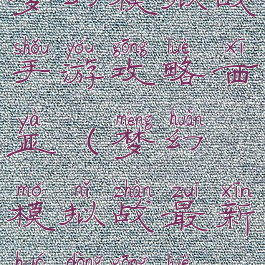 梦幻模拟战
shǒu yóu gōng lüè xī
手游攻略西
yà mèng huàn
亚（梦幻
mó nǐ zhàn zuì xīn
模拟战最新